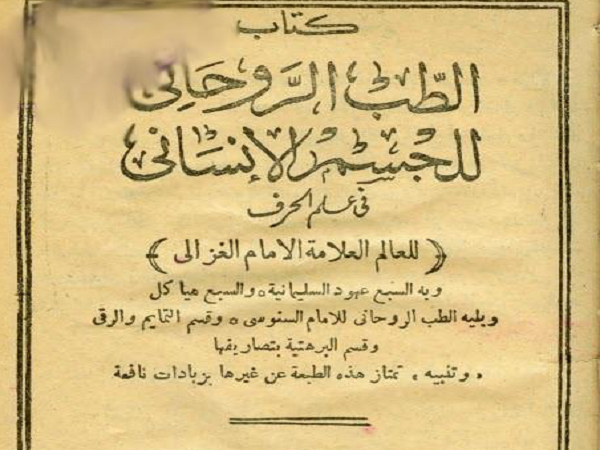 كتاب
الطب الروحانى
للجسم الإنسانى
فى علم الحرف
﴿ للعالم العلامة الامام الغزالى ﴾
وبه السبع عهود السليمانية، والسبع هياكل
ويليه الطب الروحانى للامام السنوسى، وقسم التمايم والرقى
وقسم البرهتية بتصاريفها
، وتنبيه ، تمتاز هذه الطبعة عن غيرها بزيادات نافعة